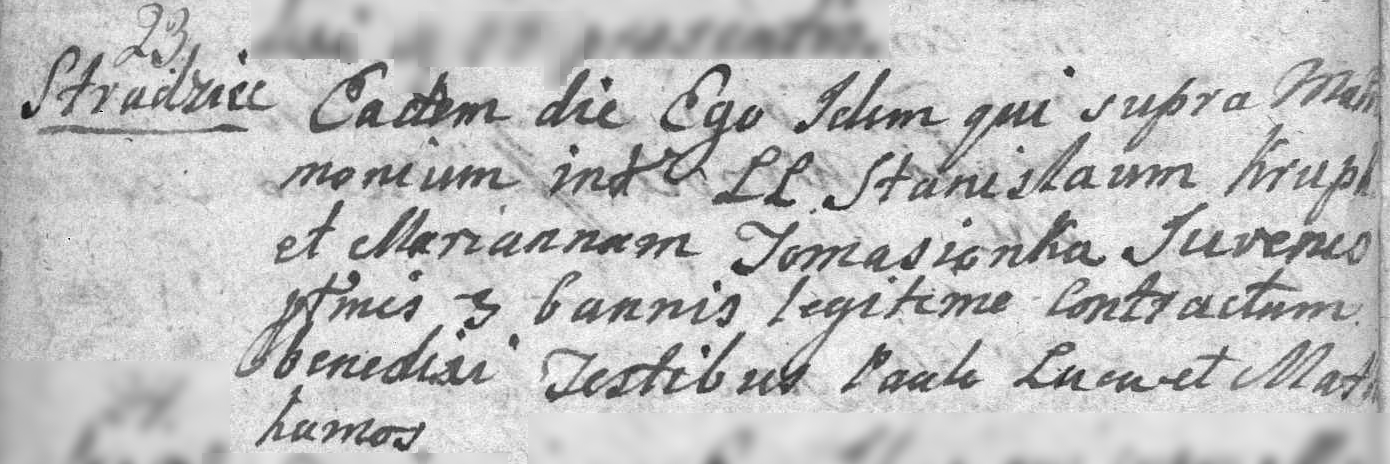 23
Stradzice Eadem die Ego Idem qui supra Matri
monium intr LL Stanislaum Krupk
et Mariannam Tomasionka Juvenes
ptmis 3 bannis legitime contractum
benedixi Testibus Paulo Luca et Mat
humos